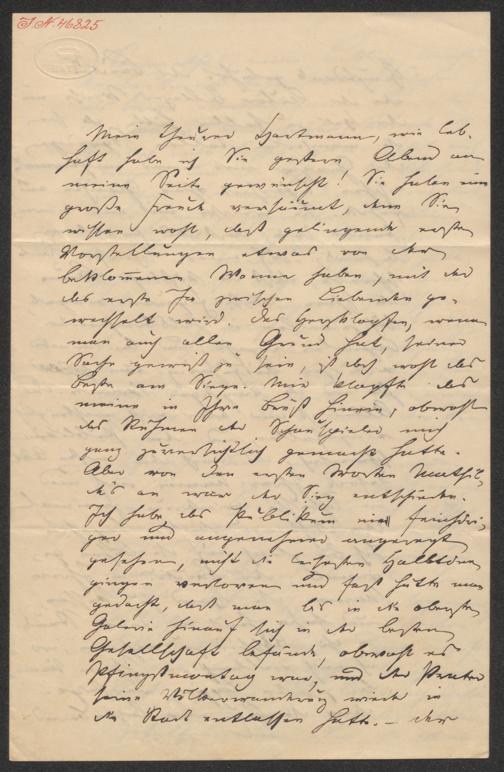 J.N. 46825
Mein theurer Hartmann, wie leb-
haft habe ich Sie gestern Abend an
meine Seite gewünscht! Sie haben eine
große Freude versäumt, denn Sie
wissen wohl, daß gelingende erste
Vorstellungen etwas von der
beklom̅enen Wonne haben, mit der
das erste Ja zwischen Liebenden ge-
wechselt wird. Das Herzklopfen, wenn
man auch allen Grund hat, seiner
Sache gewiß zu sein, ist doch wohl das
Beste am Siege. Mir klopfte das
meine in Ihre Brust hinein, obwohl
das Rühmen der Schauspieler mich
ganz zuversichtlich gemacht hatte.
Aber von den ersten Worten Mathil-
de's an war der Sieg entschieden.
Ich habe das Publikum nie feinhöri-
ger und angenehmer angeregt
gesehen, nicht die leisesten Halbtöne
gingen verloren und fast hätte man
gedacht, daß man bis in die oberste
Galerie hinauf sich in der besten
Gesellschaft befände, obwohl es
Pfingstmontag war, und der Prater
seine Völkerwanderung wieder in
die Stadt entlassen hatte. – Der